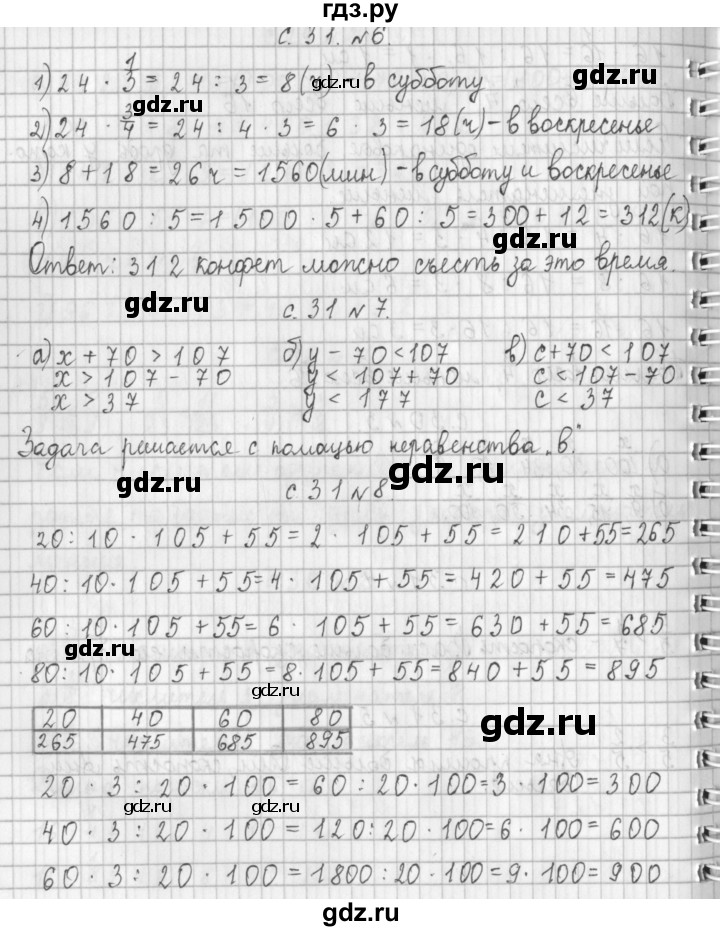 гдз.ру
с. 31. №6.
1) 24 · 1/3 = 24 : 3 = 8 (ч) – в субботу
2) 24 · 3/4 = 24 : 4 · 3 = 6 · 3 = 18 (ч) – в воскресенье
gdz.ru gdz.ru
3) 8 + 18 = 26 ч = 1560 (мин) – в субботу и воскресенье
4) 1560 : 5 = 1500 · 5 + 60 : 5 = 300 + 12 = 312 (к)
gdz.ru
Ответ: 312 конфет можно съесть за это время.
gdz.ru
с. 31 №7.
gdz.ru
а) x + 70 > 107 б) y – 70 < 107 в) c + 70 < 107
x > 107 – 70 y < 107 + 70 c < 107 – 70
x > 37 y < 177 c < 37
Задача решается с помощью неравенства „в."
gdz.ru gdz.ru
с 31 №8
20 : 10 · 105 + 55 = 2 · 105 + 55 = 210 + 55 = 265
gdz.ru
40 : 10 · 105 + 55 = 4 · 105 + 55 = 420 + 55 = 475
60 : 10 · 105 + 55 = 6 · 105 + 55 = 630 + 55 = 685
gdz.ru gdz.ru
80 : 10 · 105 + 55 = 8 · 105 + 55 = 840 + 55 = 895
gdz.ru
20 40 60 80
265 475 685 895
gdz.ru
20 · 3 : 20 · 100 = 60 : 20 · 100 = 3 · 100 = 300
gdz.ru gdz.ru
40 · 3 : 20 · 100 = 120 : 20 · 100 = 6 · 100 = 600
60 · 3 : 20 · 100 = 1800 : 20 · 100 = 9 · 100 = 900
gdz.ru